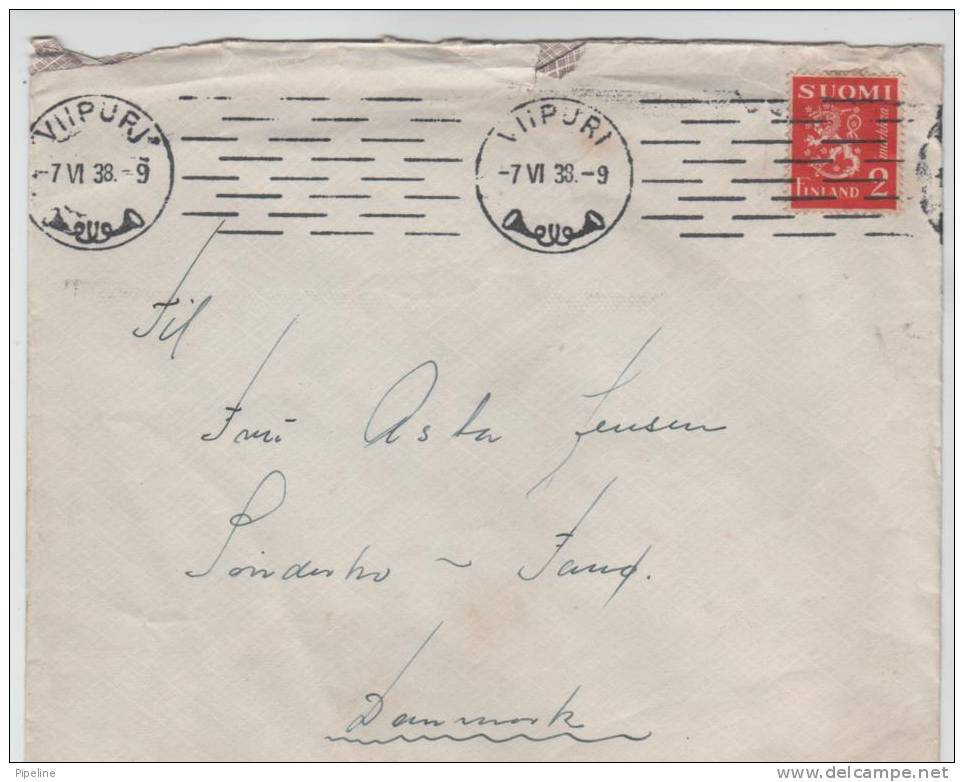 VIIPURI VIIPURI
-7 VI 38.-9 -7 VI 38.-9
SUOMI
markkaa
FINLAND 2
Til
Fru Asta Jensen
Sönderho ~ Fanø.
Danmark
Pipeline
www.delcampe.net